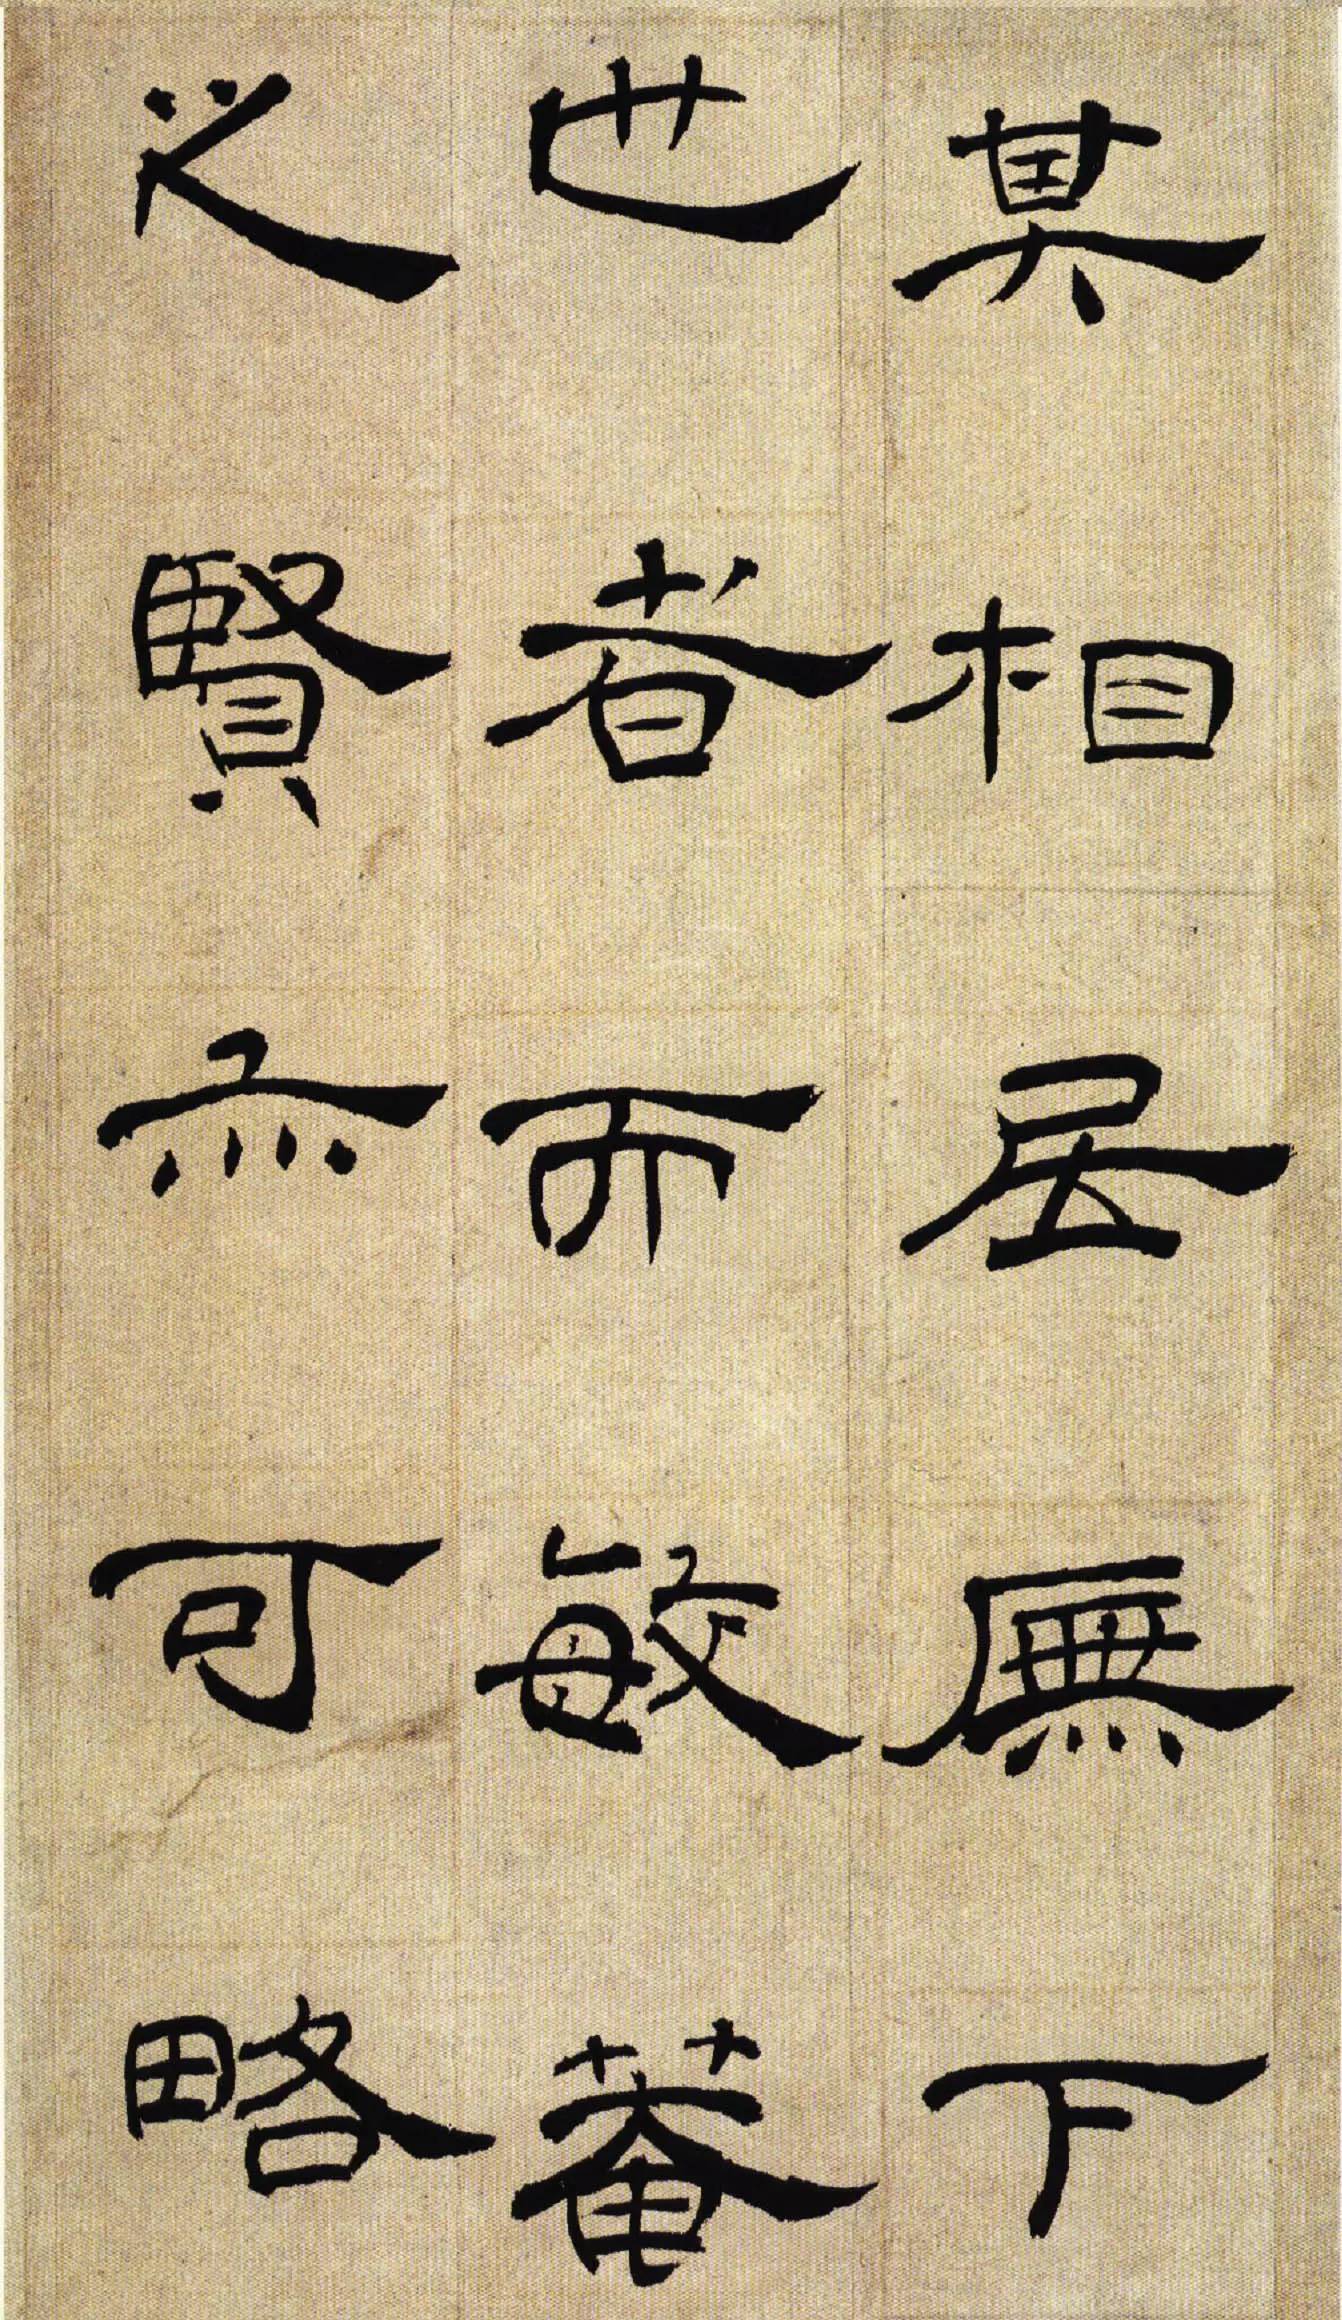 其相居廡下
世者而敏菴
之賢亦可略